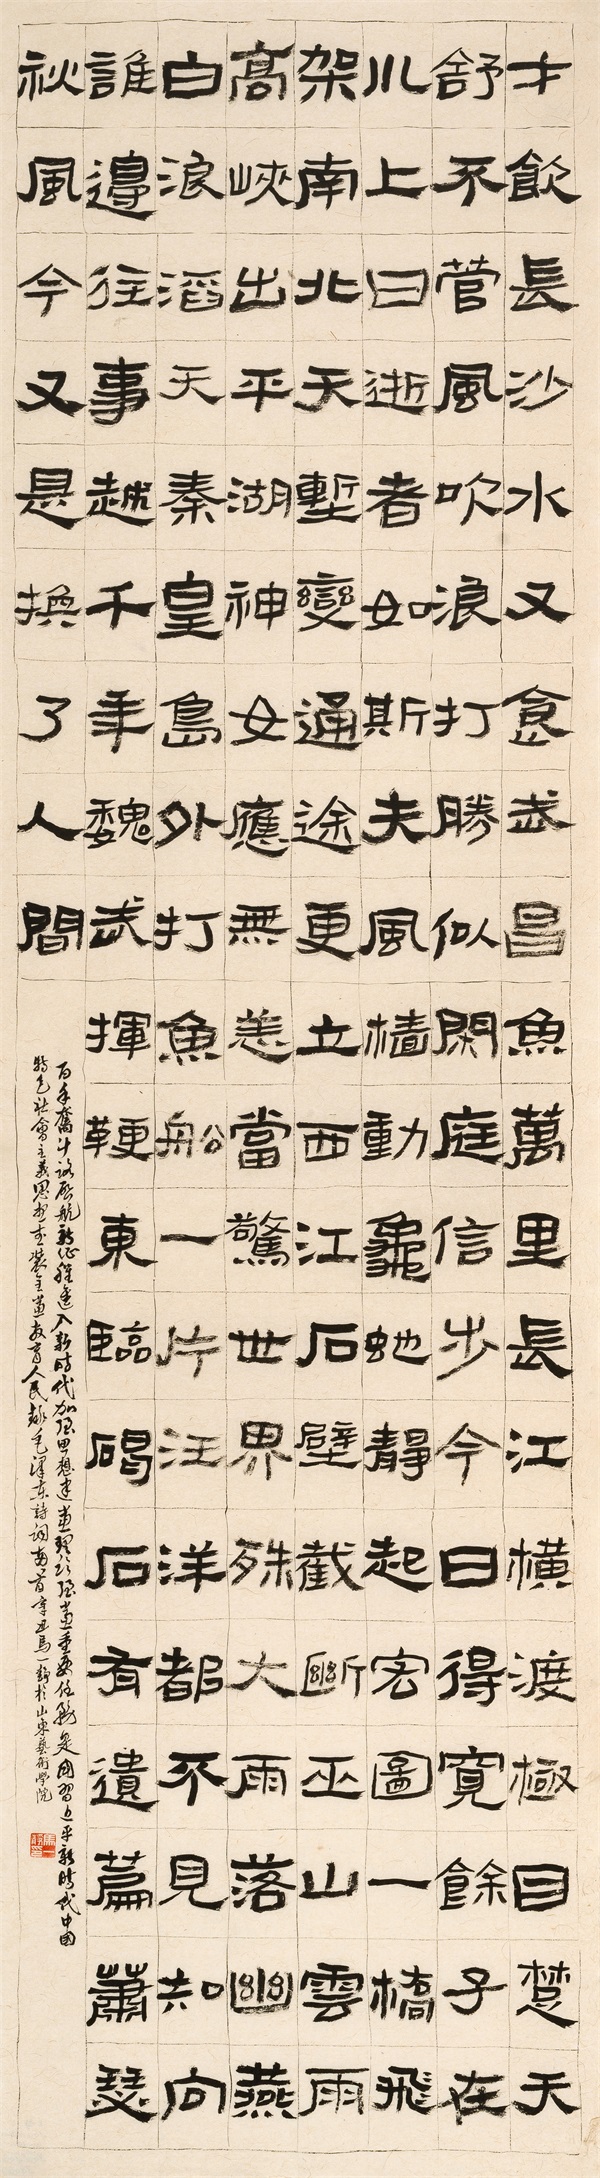 才飲長沙水又食武昌魚萬里長江橫渡極目楚天
舒不管風吹浪打勝似閑庭信步今日得寬餘子在
川上曰逝者如斯夫風檣動龜蛇靜起宏圖一橋飛
架南北天塹變通途更立西江石壁截斷巫山雲雨
高峽出平湖神女應無恙當驚世界殊大雨落幽燕
白浪滔天秦皇島外打魚船一片汪洋都不見知向
誰邊往事越千年魏武揮鞭東臨碣石有遺篇蕭瑟
秋風今又是換了人間
百年奮斗路启航新征程進入新時代加强思想建黨理論强黨重要任務是用習近平新時代中國
特色社會主義思想武裝全黨教育人民錄毛澤東詩詞兩首辛丑馬一於山東藝術學院